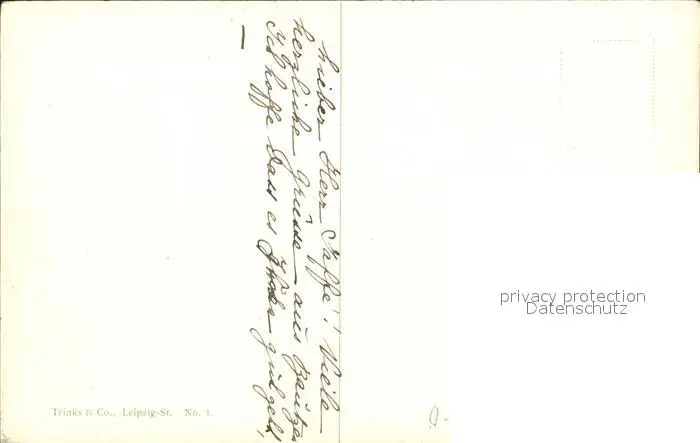 Lieber Herr Jaffe! Viele
herzliche Grüsse aus Bautzen
Ich hoffe dass es Ihnen gut geht,
—
Trinks & Co., Leipzig-St. No. 1.
privacy protection
Datenschutz